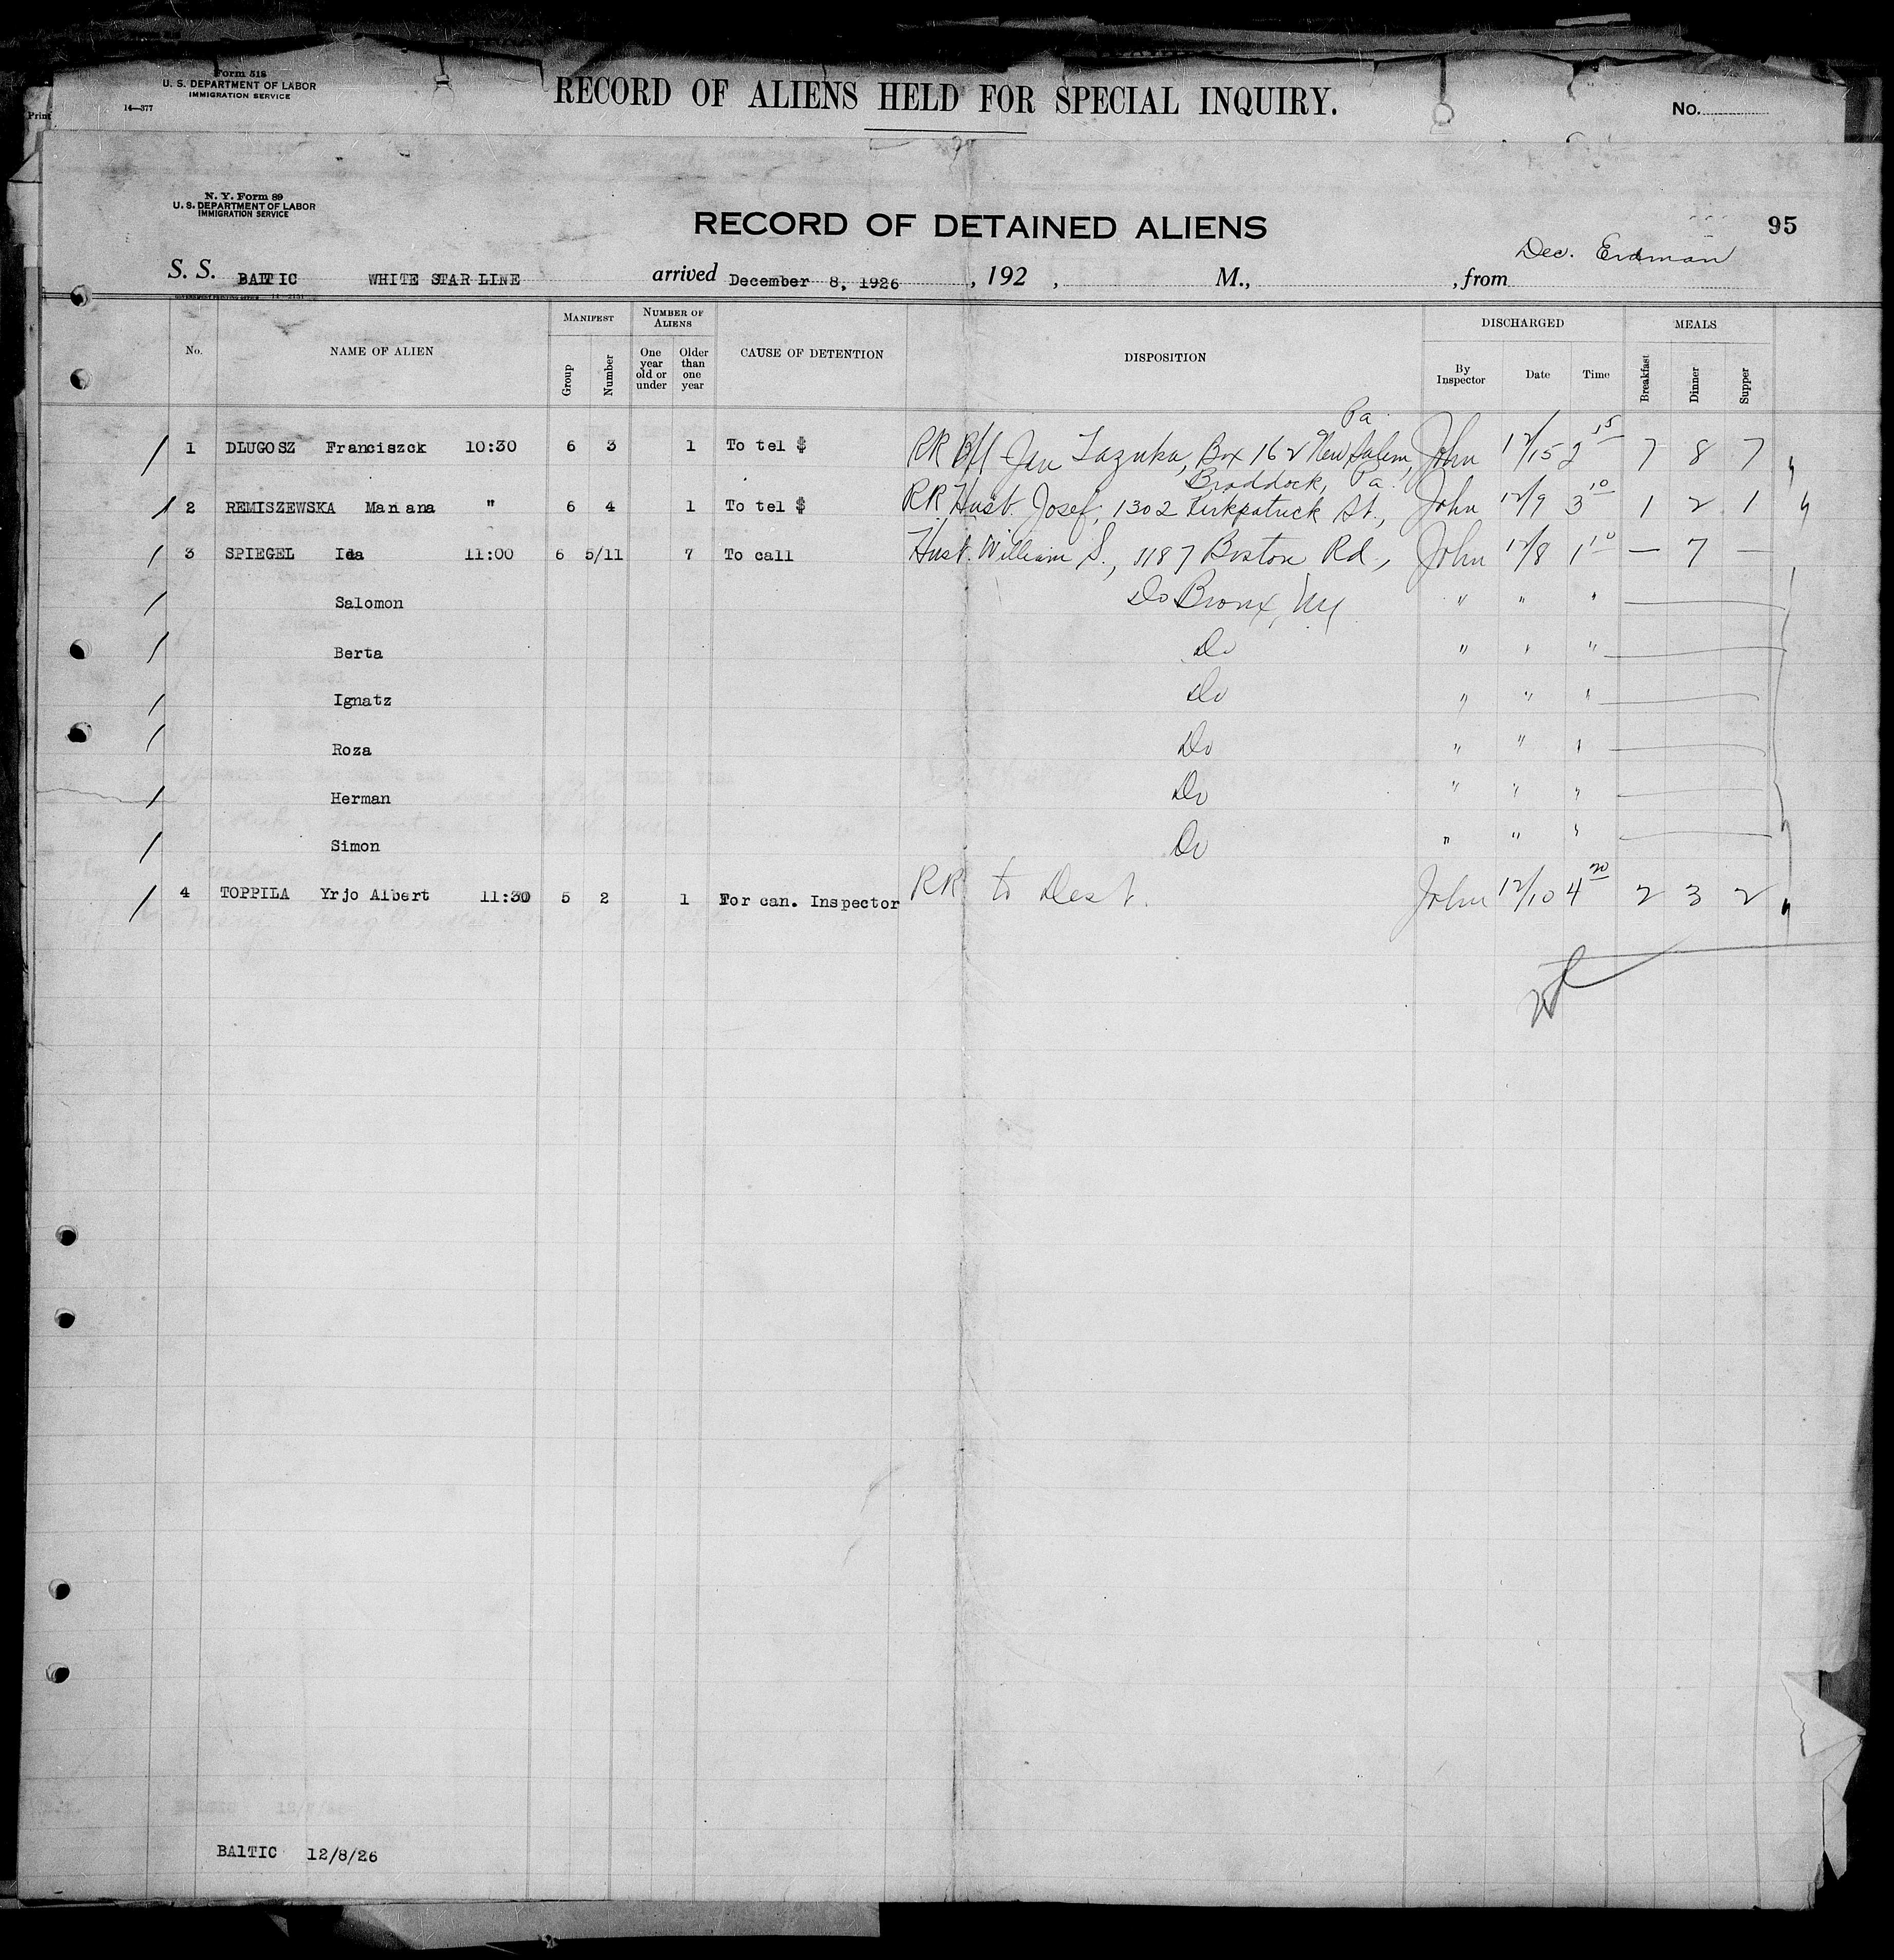 Form 518
U. S. DEPARTMENT OF LABOR
IMMIGRATION SERVICE
14—377
Print
RECORD OF ALIENS HELD FOR SPECIAL INQUIRY.
No.
N. Y. Form 89
U. S. DEPARTMENT OF LABOR
IMMIGRATION SERVICE
RECORD OF DETAINED ALIENS
95
Dec. Erdman
S. S. BALTIC WHITE STAR LINE arrived December 8, 1926, 192 , M., , from
No. NAME OF ALIEN MANIFEST Group Number NUMBER OF ALIENS One year old or under Older than one year CAUSE OF DETENTION DISPOSITION DISCHARGED By Inspector Date Time MEALS Breakfast Dinner Supper
Pa
1 DLUGOSZ Franciszek 10:30 6 3 1 To tel $ RR Jan Box 162 New Salem, John 12/15 2 15 7 8 7
Braddock, Pa.
2 REMISZEWSKA Mariana " 6 4 1 To tel $ RR Husb. Josef, 1302 Kirkpatrick St., John 12/9 3 10 1 2 1
3 SPIEGEL Ida 11:00 6 5/11 7 To call Husb. William S., 1187 Boston Rd., John 12/8 1 10 — 7 —
Salomon Do Bronx, NY " " "
Berta Do " " "
Ignatz Do " " "
Roza Do " " "
Herman Do " " "
Simon Do " " "
4 TOPPILA Yrjo Albert 11:30 5 2 1 For can. Inspector RR to Dest. John 12/10 4 20 2 3 2
BAlTIC 12/8/26